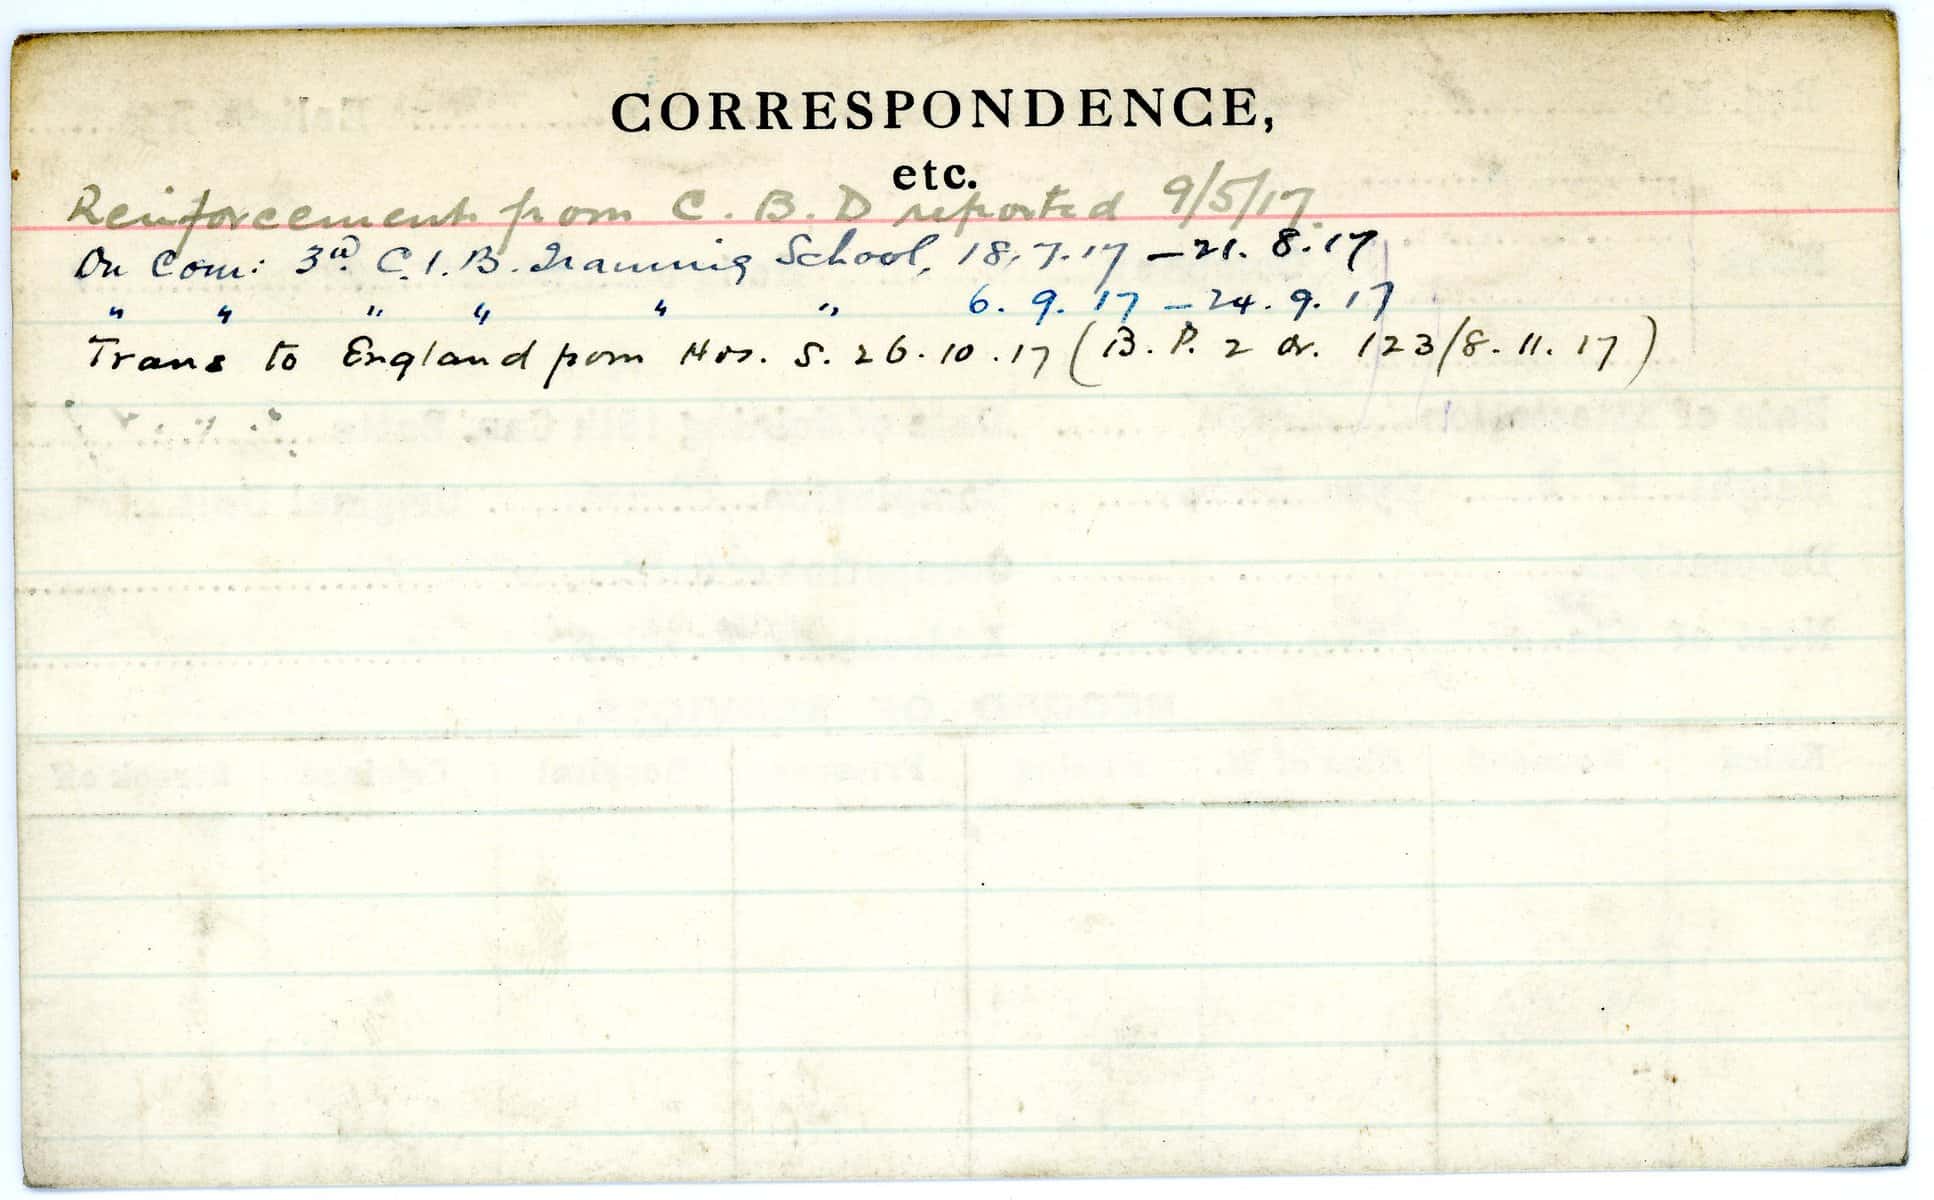 CORRESPONDENCE,
etc.
Reinforcement from C. B. D reported 9/5/17.
On Com: 3rd. C. I. B. Training School, 18.7.17 — 21.8.17
" " " " " " 6.9.17 — 24.9.17
Trans to England from Hos. S. 26.10.17 (B. P. 2 Or. 123/8.11.17)